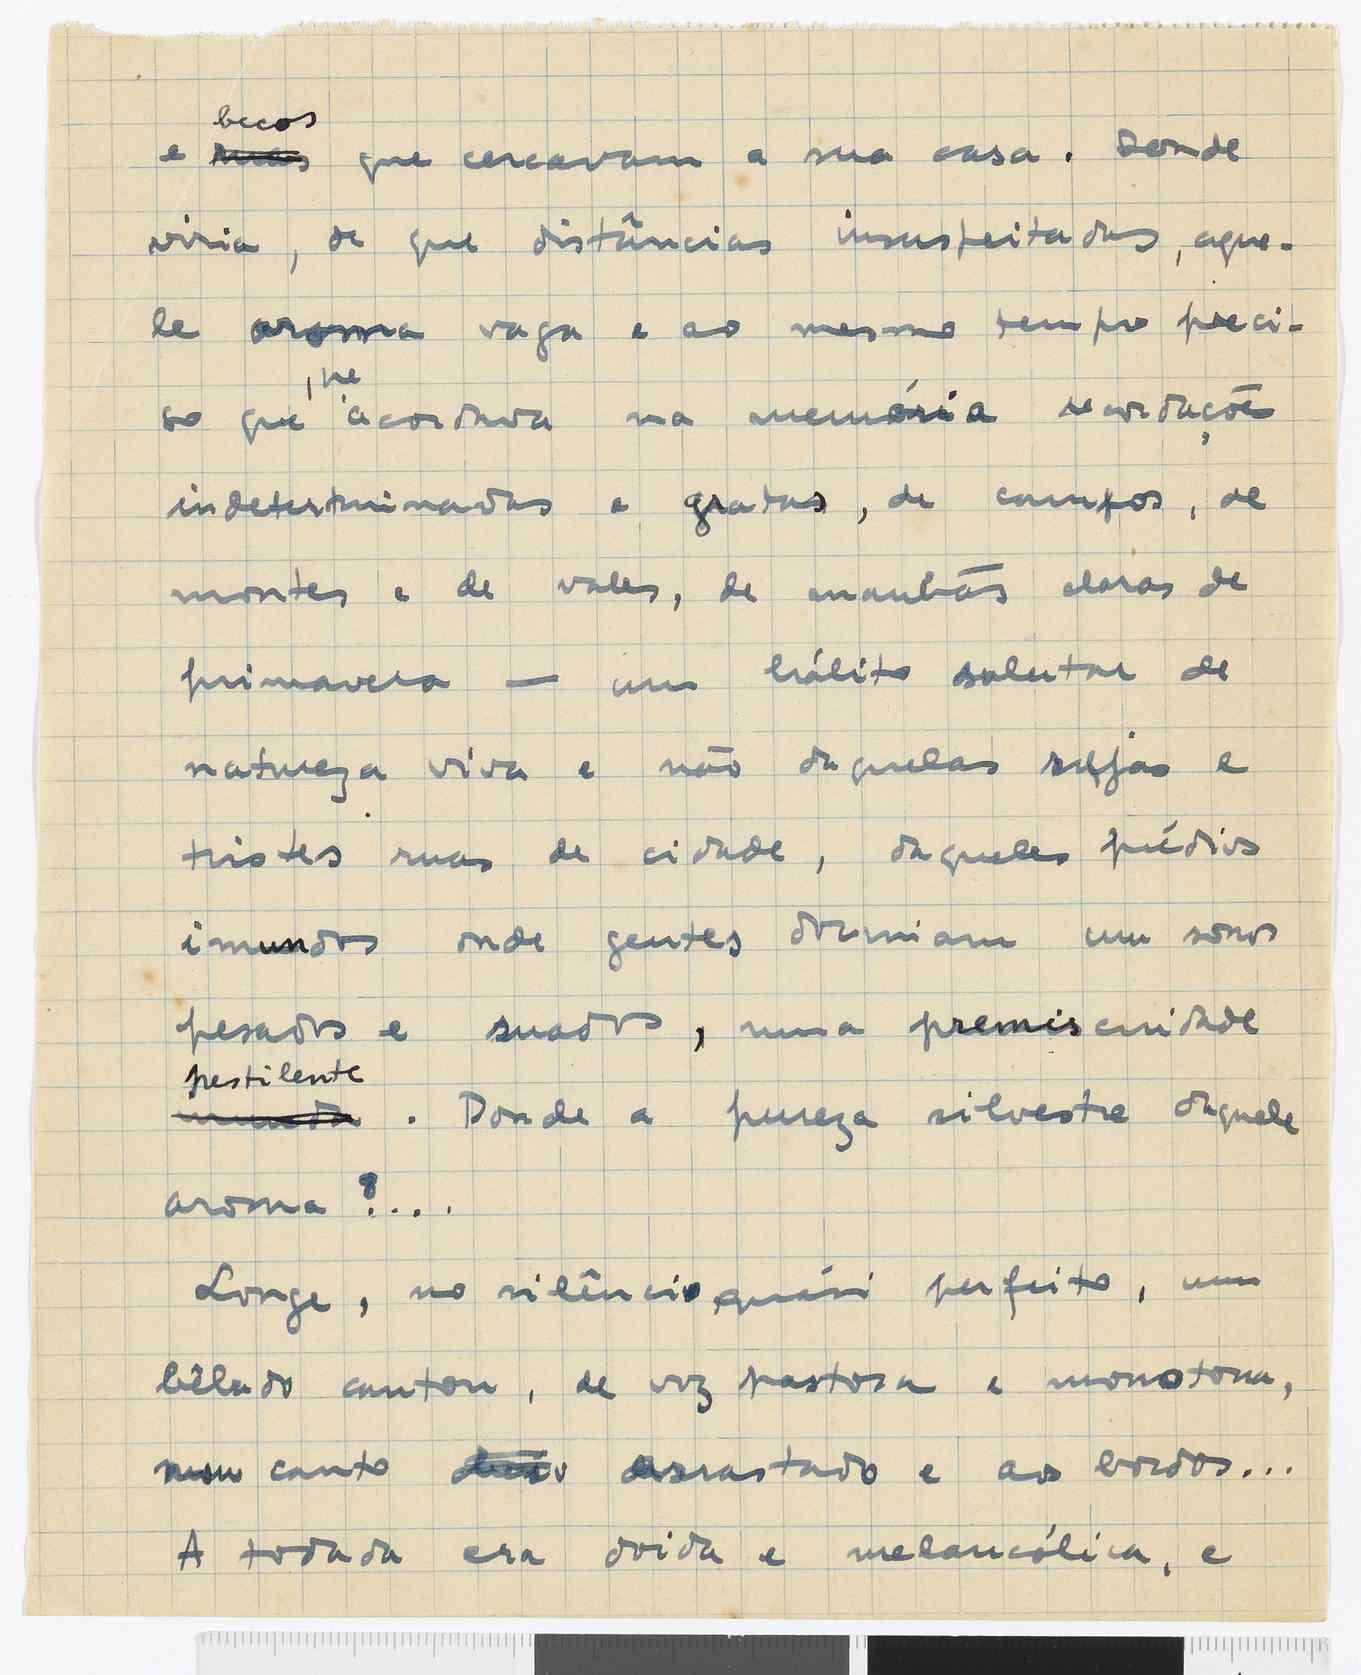 becos
e ruas que cercavam a sua casa. Donde
viria, de que distâncias insuspeitadas, aque-
le aroma vago e ao mesmo tempo preci-
, he
so que acordava na memória recordações
indeterminadas e gratas, de campos, de
montes e de vales, de manhãs claras de
primavera — um hálito salutar de
natureza viva e não daquelas sujas e
tristes ruas de cidade, daqueles prédios
imundos onde gentes dormiam uns sonos
pesados e suados, numa premiscuidade
pestilente
imunda. Donde a pureza silvestre daquele
aroma?...
Longe, no silêncio quási perfeito, um
bêbado cantou, de voz pastosa e monotona,
num canto arrastado e aos bordos...
A toada era doida e melancólica, e